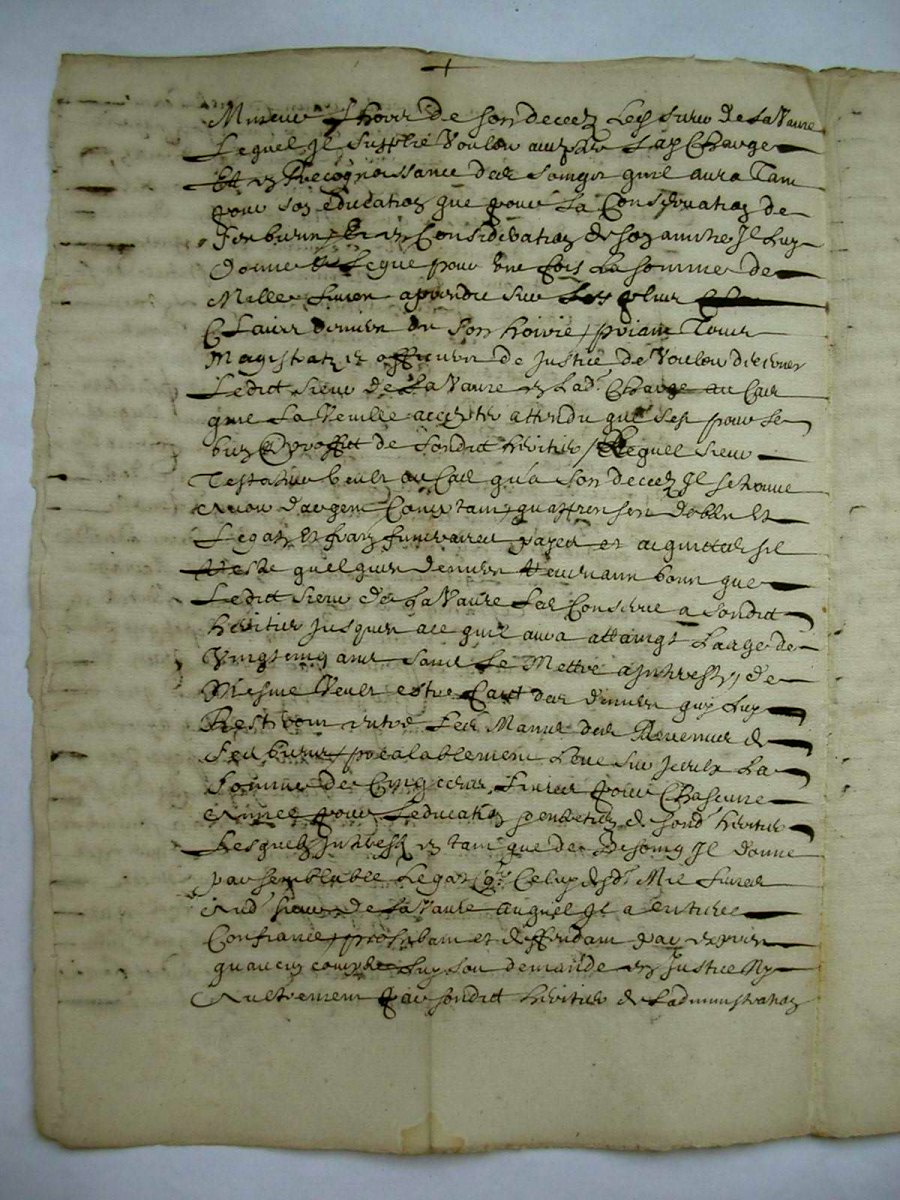 Mineur Lheure de son decez Ledt sieur de La Vaure
Lequel Il supplie Vouloir La charge
Et en Recognoissance des soings quil aura Tant
pour son education que pour La Conservation de
ses biens Et en Consideration de son amitie Il Luy
donne & Legue pour une fois La somme de
Mille Livres a prendre sur Les plus
Clairs deniers de son hoirie, priant Tous
Magistratz et officiers de Justice de Vouloir
Ledict sieur de La Vaure en Lade Charge au Cas
quil La Veuille accepter attendu que cest pour Le
bien & proffict de sondict heritier / Lequel sieur
Testateur Veult au Cas qu'a son decez Il se trouve
Avoir d'argent Comptant, debtes
Legatz et fraiz funeraires payes et acquittes sil
Reste quelques deniers bons que
Ledict sieur de La Vaure Les Conserve a sondict
heritier Jusques a ce quil aura attaingt Laage de
Vingt cinq ans sans Le Mettre a Intherestz, de
Mesme Veult estre faict des deniers quy Luy
Resteront entre Les Mains des Revenus de
ses biens, prealablement Leve sur Iceulx La
somme de Livres pour Chascune
Annee pour Leducation & de sond heritier
Lesquelz Intherestz en tant que de Besoing Il donne
par semblable Legat que Celuy desd Mil Livres
Aud sieur de La Vaure auquel Il a Entiere
Confiance, prohibant et deffendant par expres
quaucun compte Luy soit demandé en Justice Ny
Aultrement par sondict heritier de Ladministration